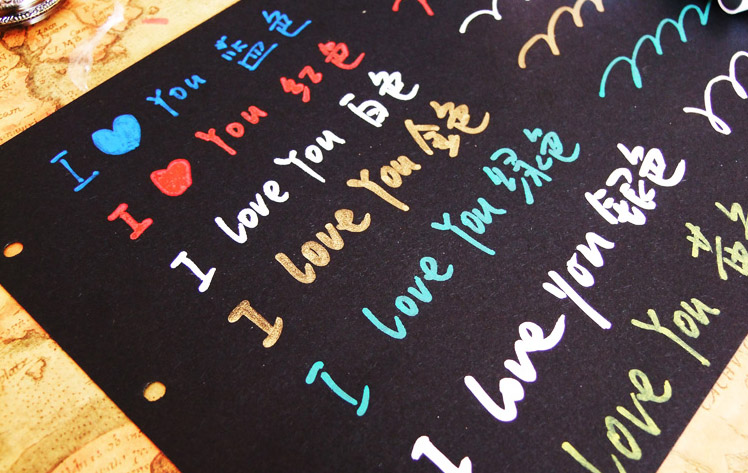 I ♥ You 蓝色
I ♥ You 红色
I love You 白色
I Love You 金色
I Love You 绿色
I love you 银色
Love You